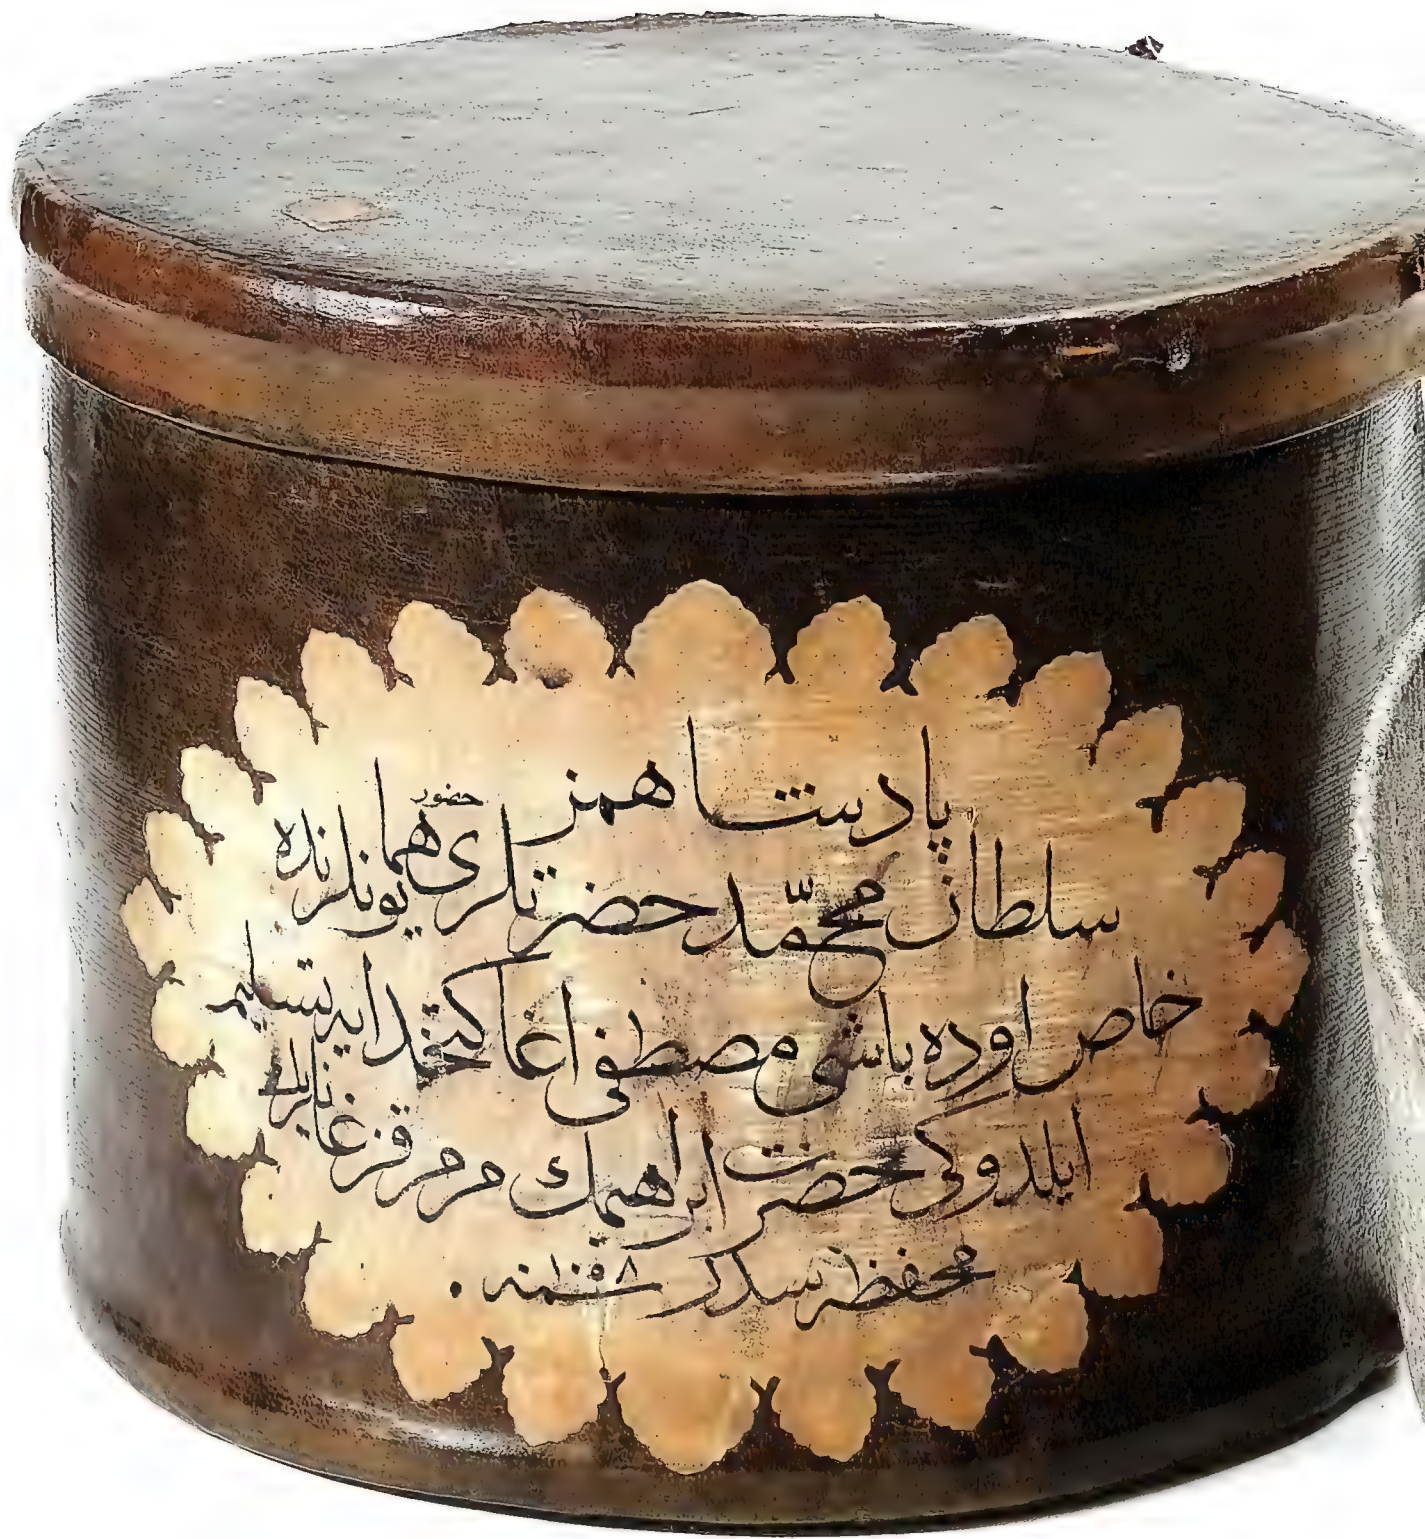 پادشاهمز
سلطان محمّد حضرتلری حضور همایونلرنده
خاص اوده باشی مصطفی اغا کتخدایه تسلیم
ایلدوکی حضرت ابراهیمك مرمر قزغانلرینك
محفظه سیدر سنه ١٠٥٨ .